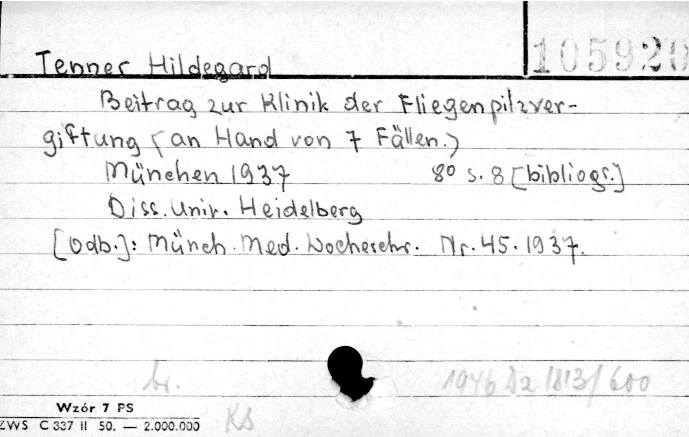 105920
Tenner Hildegard
Beitrag zur Klinik der Fliegenpilzver-
giftung (an Hand von 7 Fällen.)
München 1937 8° s. 8 [bibliogr.]
Diss. Univ. Heidelberg
[Odb.]: Münch. Med. Wochenschr. Nr. 45. 1937.
br. 1946 Dz 1813/600
Wzór 7 PS
ZWS C 337 II 50. — 2.000.000
KS